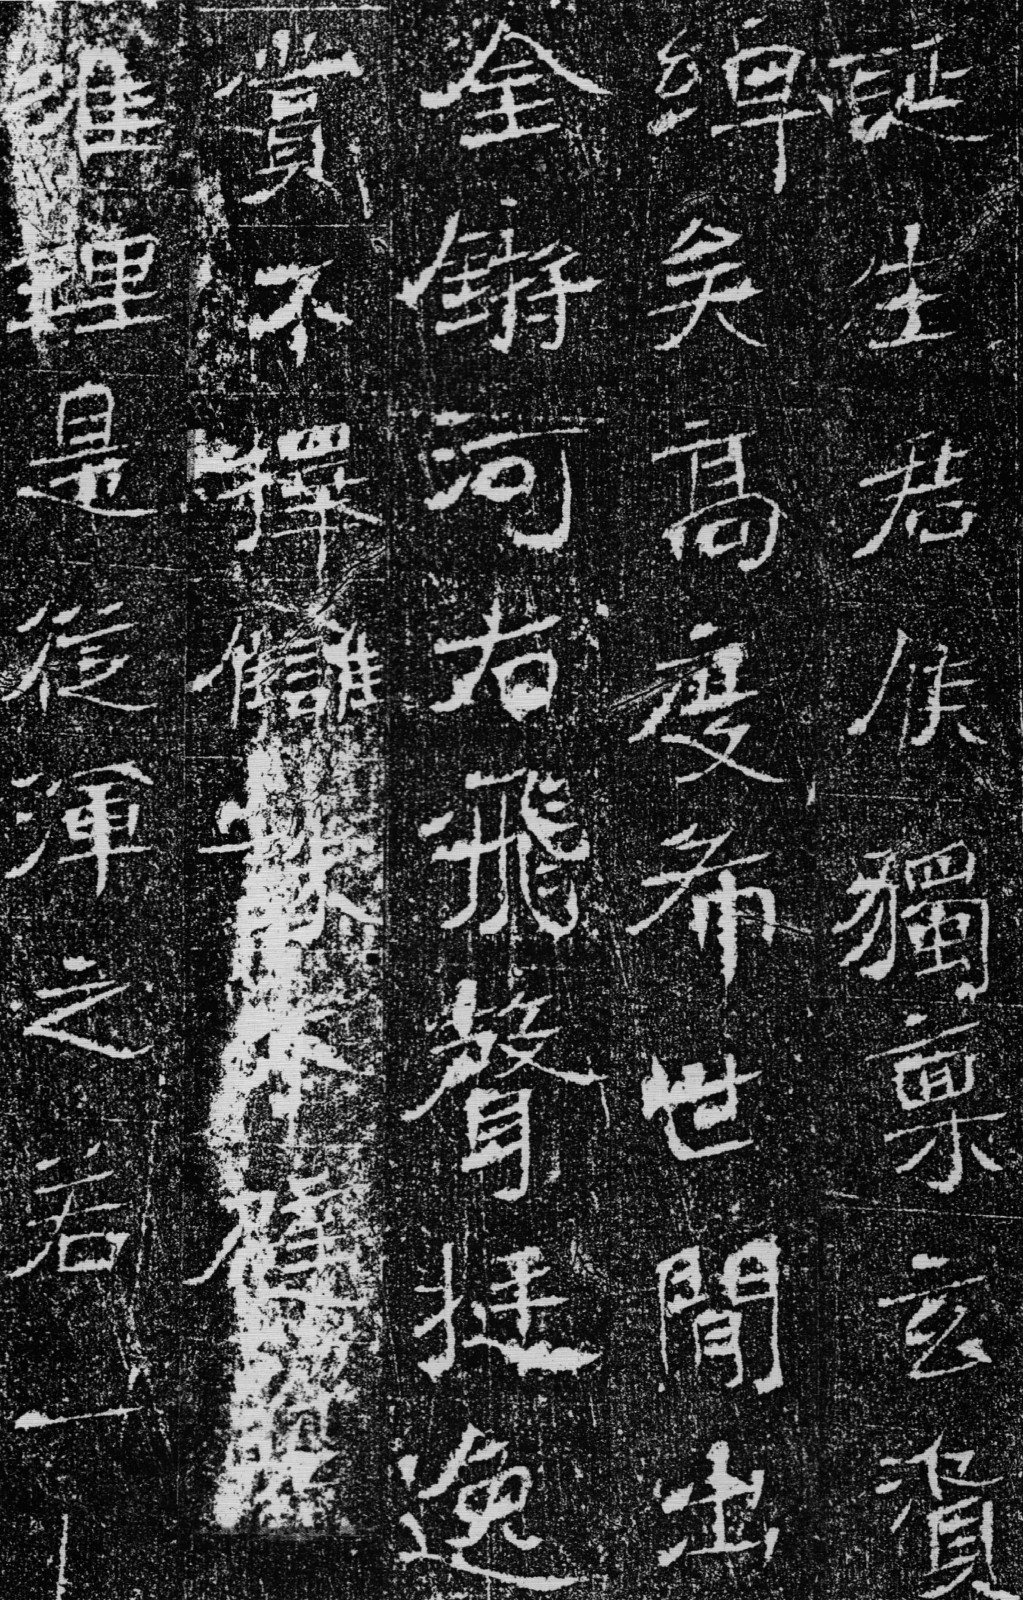 誕生君侯獨稟玄資
綽矣高度希世間出
全鏘河右飛聲挺逸
賞不擇讎不避
理是從渾之若一